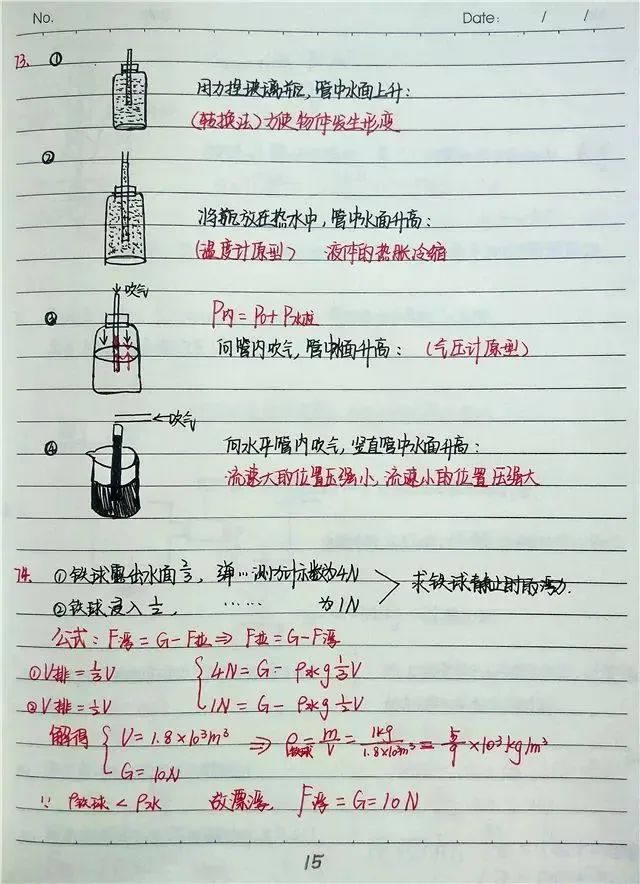 No.
Date: / /
73. ①
用力捏玻璃瓶, 管中水面上升:
(转换法) 力使物体发生形变
②
将瓶放在热水中, 管中水面升高:
(温度计原型) 液体的热胀冷缩
↓吹气
③ P内 = P0 + P水柱
向管内吹气, 管中水面升高: (气压计原型)
←吹气
④ 向水平管内吹气, 竖直管中水面升高:
流速大的位置压强小, 流速小的位置压强大
74. ①铁球露出水面2/3, 弹…测力计示数为4N
②铁球浸入1/2, …… 为1N
> 求铁球静止时的浮力.
公式: F浮 = G - F拉 ⇒ F拉 = G - F浮
①V排 = 1/3 V { 4N = G - ρ水g 1/3 V
②V排 = 1/2 V 1N = G - ρ水g 1/2 V
解得 { V = 1.8×10³m³ ⇒ ρ铁球 = m/V = 1kg/1.8×10³m³ = 5/9 ×10³kg/m³
G = 10N
∵ ρ铁球 < ρ水 故漂浮, F浮 = G = 10N
15